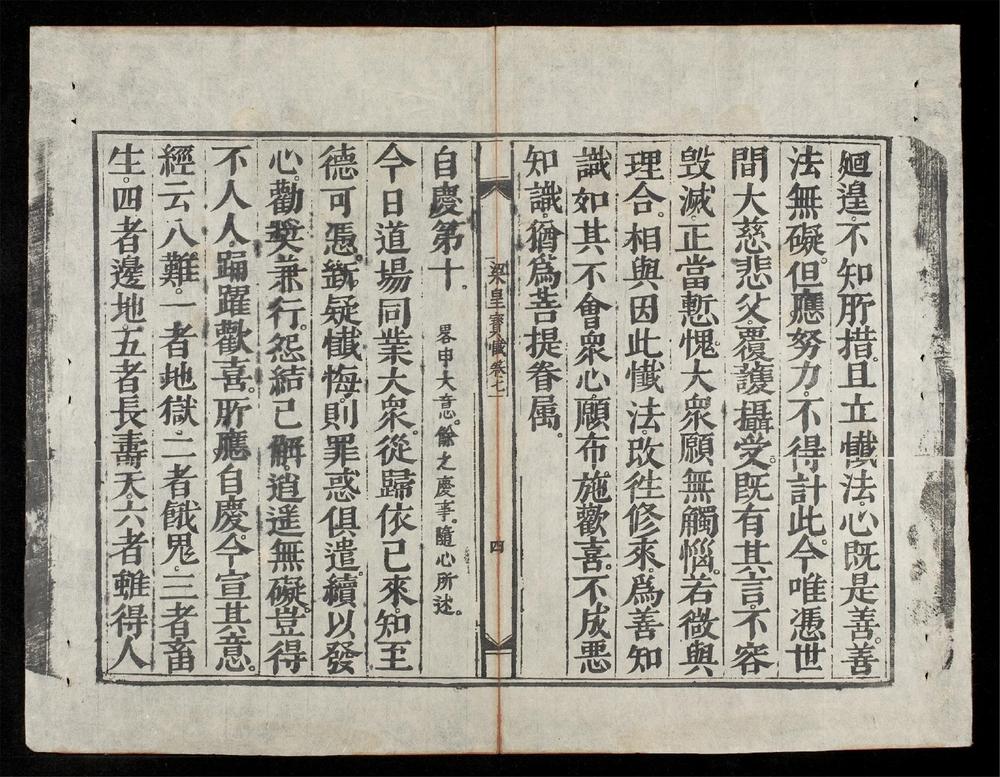 廻遑。不知所措。且立懺法。心既是善。善
法無礙。但應努力。不得計此。今唯憑世
間大慈悲父。覆護攝受。既有其言。不容
毀滅。正當慙愧。大衆願無觸惱。若微與
理合。相與因此懺法。改徃修來。爲善知
識。如其不會衆心。願布施歡喜。不成惡
知識。猶爲菩提眷属。
梁皇寶懺卷七
四
自慶第十。 畧申大意。餘之慶事。隨心所述。
今日道場同業大衆。從歸依已來。知至
德可憑。斷疑懺悔。則罪惑俱遣。續以發
心。勸奨兼行。怨結已解。逍遥無礙。豈得
不人人。踊躍歡喜。所應自慶。今宣其意。
經云八難。一者地獄。二者餓鬼。三者畜
生。四者邊地。五者長壽天。六者雖得人